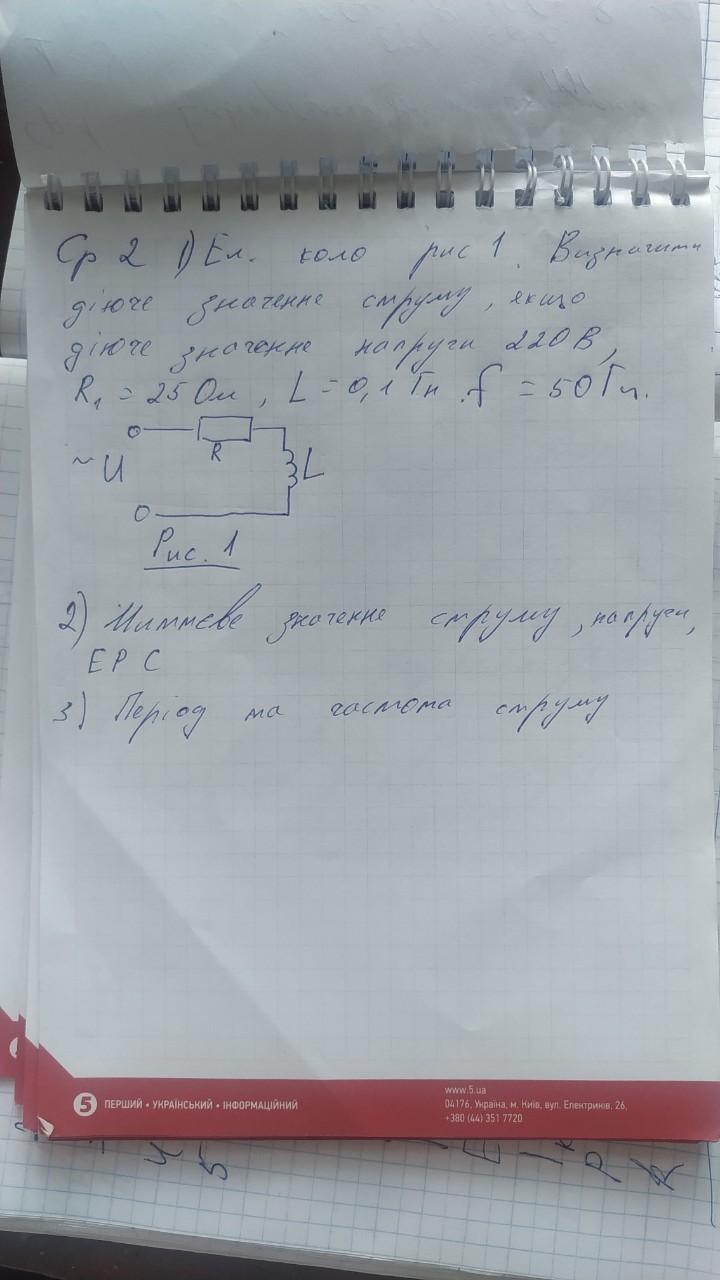 Ср 2 1) Ел. коло рис 1. Визначити
діюче значенне струму, якщо
діюче значенне напруги 220 В,
R₁ = 25 Ом, L = 0,1 Гн. f = 50 Гц.
R
~ U
L
Рис. 1
2) Миттєве значенне струму, напруги,
ЕРС
3) Період та частота струму
5 ПЕРШИЙ • УКРАЇНСЬКИЙ • ІНФОРМАЦІЙНИЙ
www.5.ua
04176, Україна, м. Київ, вул. Електриків, 26,
+380 (44) 351 7720